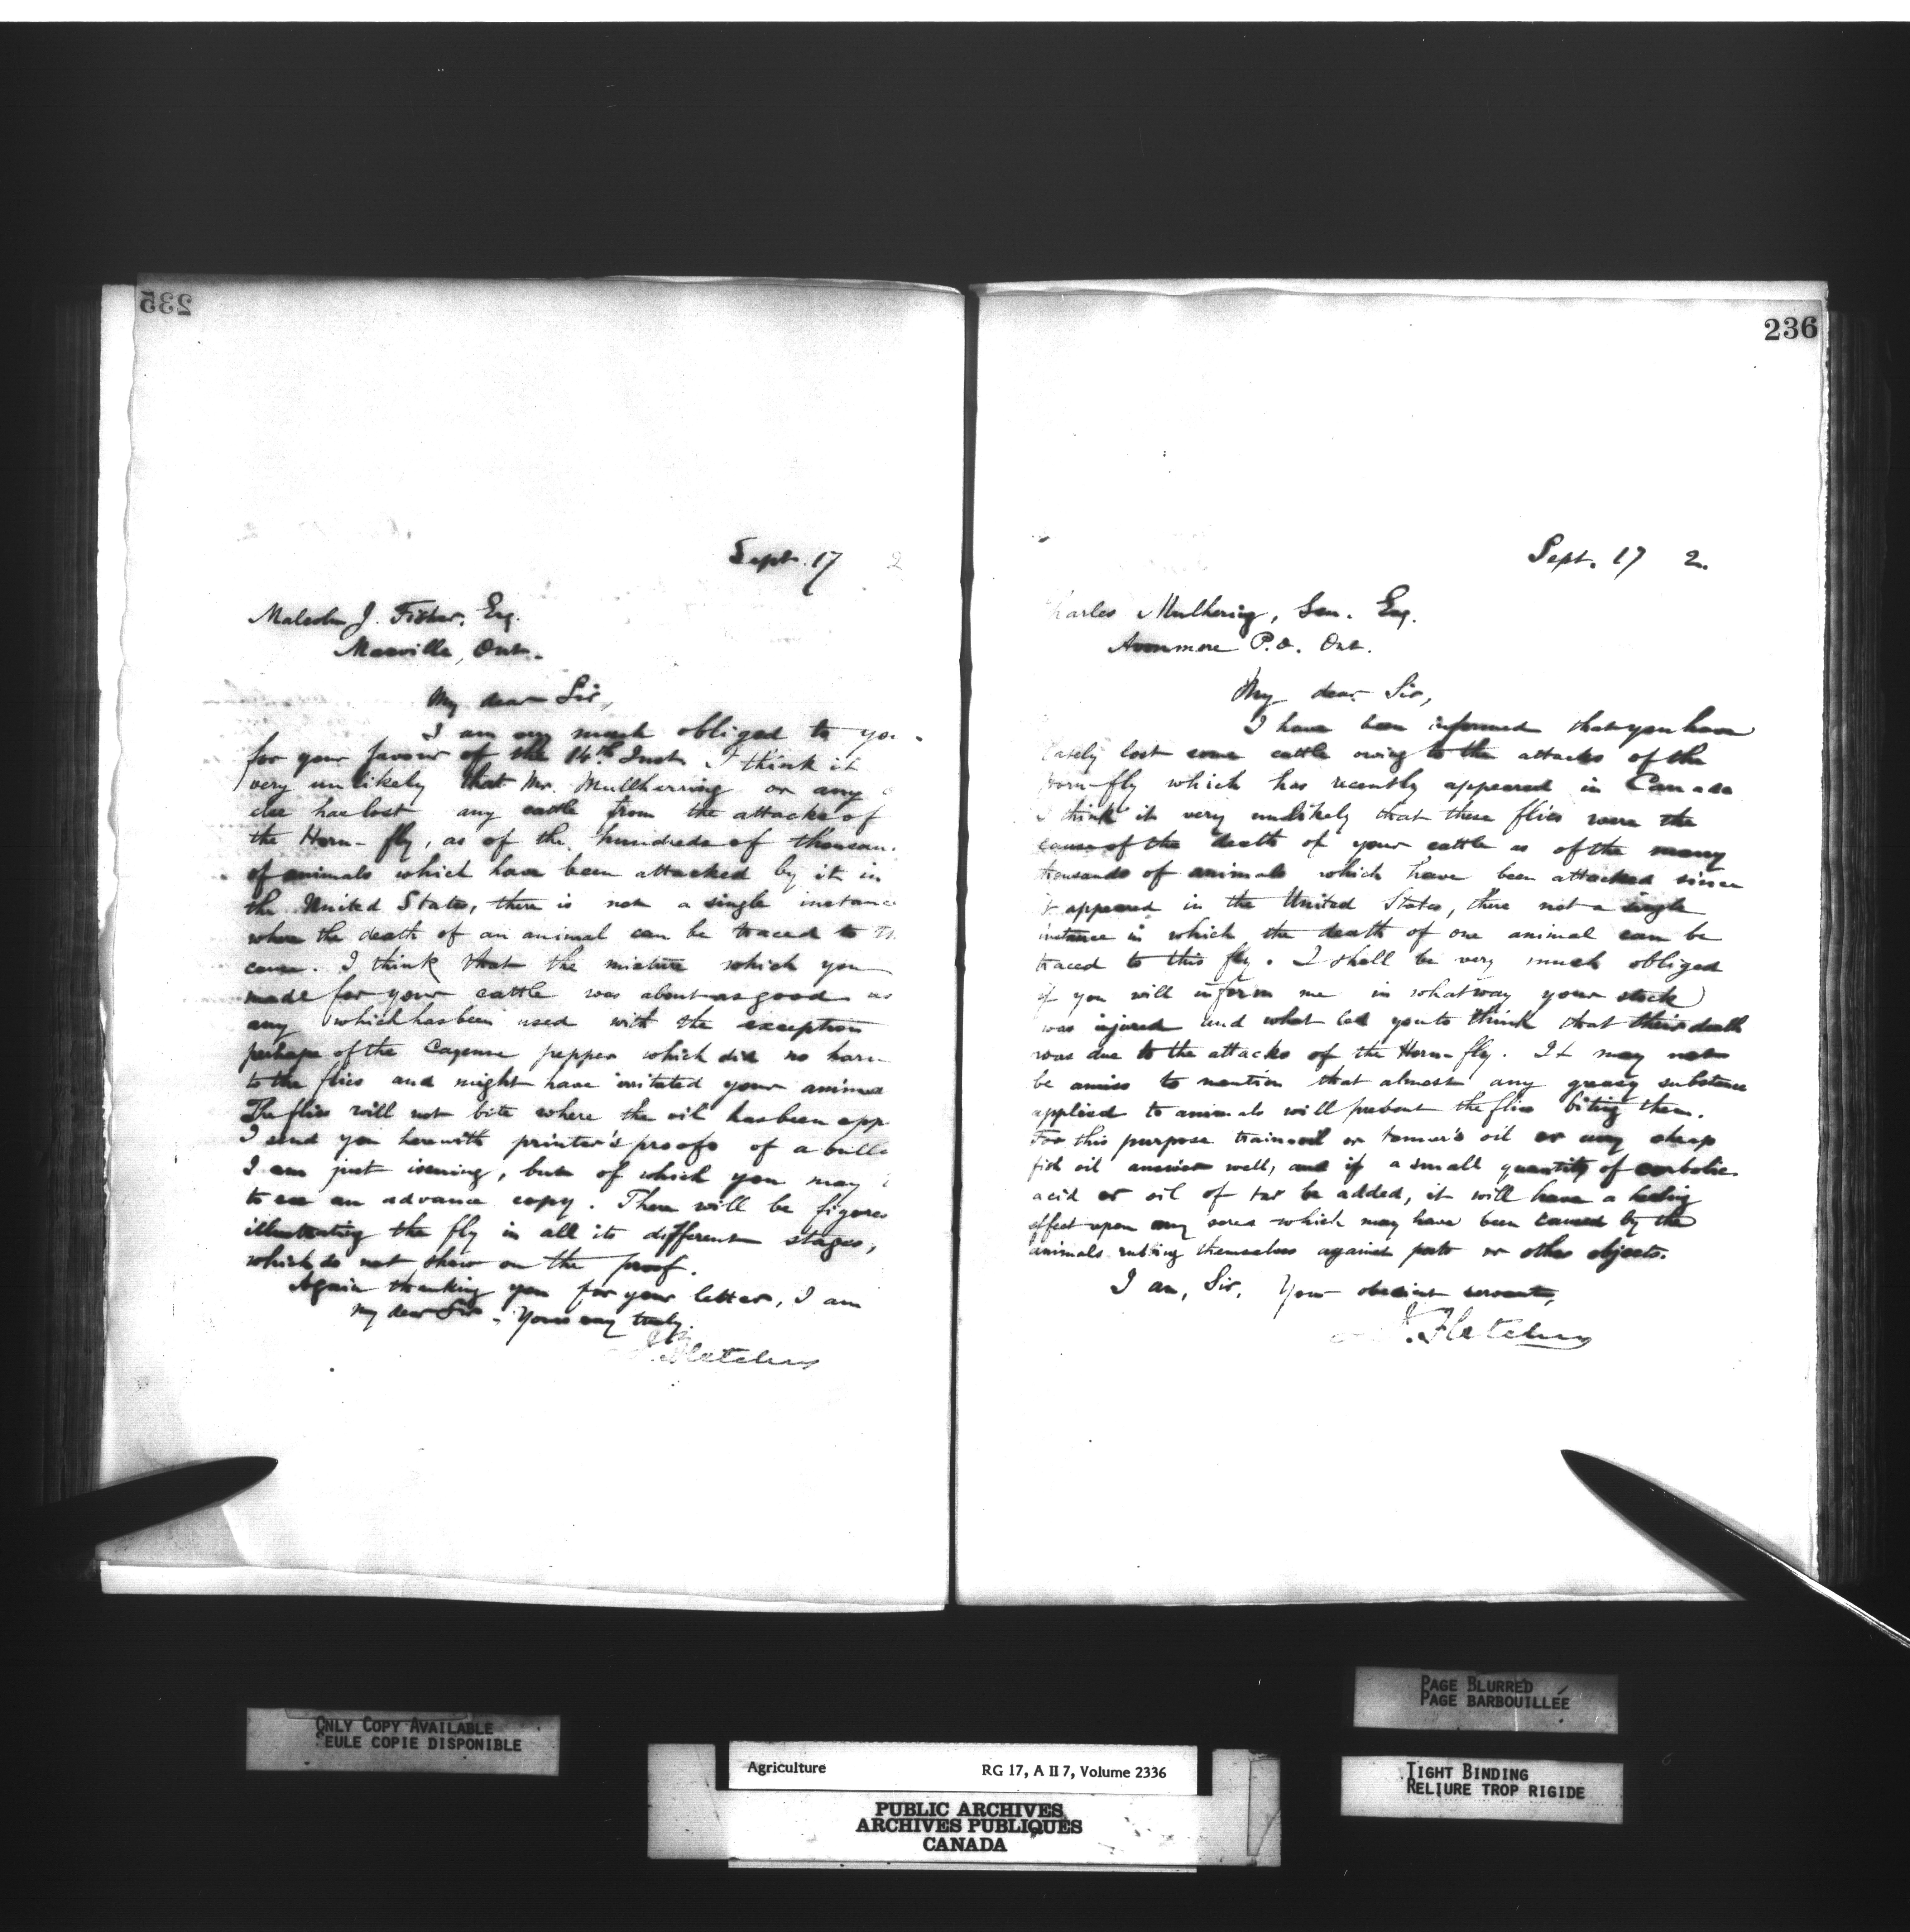 235
Sept. 17 2
Malcolm J. Fisher, Esq.
Maxville, Ont.
My dear Sir,
I am very much obliged to you
for your favour of the 14th Inst. I think it
very unlikely that Mr. Mullherring or any
else has lost any cattle from the attacks of
the Horn-fly, as of the hundreds of thousan
of animals which have been attacked by it in
the United States, there is not a single instance
where the death of an animal can be traced to th
cause. I think that the mixture which you
made for your cattle was about as good as
any which has been used with the exception
perhaps of the Cayenne pepper which did no harm
to the flies and might have irritated your animal
The flies will not bite where the oil has been app
I send you herewith printer's proofs of a bulle
I am just issuing, but of which you may
to see an advance copy. There will be figures
illustrating the fly in all its different stages,
which do not show on the proof.
Again thanking you for your letter, I am
my dear Sir - Yours very truly.
J. Fletcher
236
Sept. 17 2.
harles Mulhering, Sen. Esq.
Avonmore P.O. Ont.
My dear Sir,
I have been informed that you have
lately lost some cattle owing to the attacks of the
Horn-fly which has recently appeared in Canada
I think it very unlikely that these flies were the
cause of the death of your cattle as of the many
thousands of animals which have been attacked since
it appeared in the United States, there not a single
instance in which the death of one animal can be
traced to this fly. I shall be very much obliged
if you will inform me in what way your stock
was injured and what led you to think that their death
was due to the attacks of the Horn-fly. It may not
be amiss to mention that almost any greasy substance
applied to animals will prevent the flies biting them.
For this purpose train oil or tanner's oil or any cheap
fish oil answer well, and if a small quantity of carbolic
acid or oil of tar be added, it will have a healing
effect upon any sores which may have been caused by the
animals rubbing themselves against posts or other objects.
I am, Sir, Your obedient servant,
J. Fletcher
ONLY COPY AVAILABLE
SEULE COPIE DISPONIBLE
PAGE BLURRED
PAGE BARBOUILLÉE
TIGHT BINDING
RELIURE TROP RIGIDE
Agriculture RG 17, A II 7, Volume 2336
PUBLIC ARCHIVES
ARCHIVES PUBLIQUES
CANADA